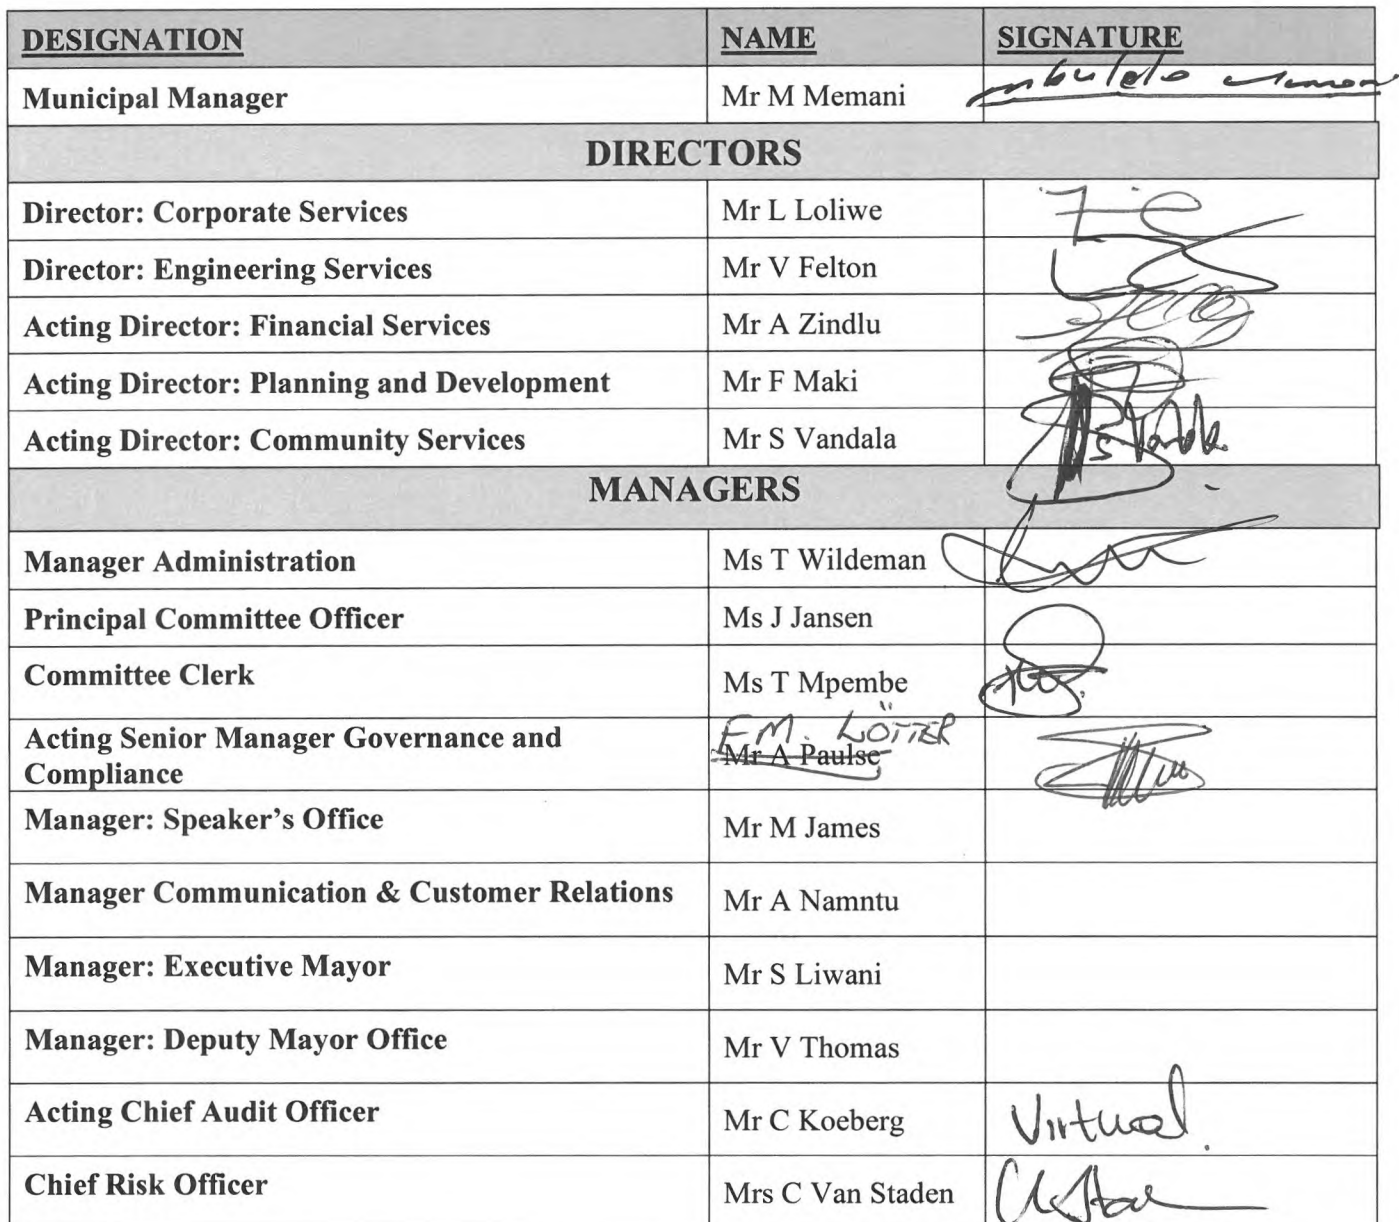 DESIGNATION NAME SIGNATURE
Municipal Manager Mr M Memani
DIRECTORS
Director: Corporate Services Mr L Loliwe
Director: Engineering Services Mr V Felton
Acting Director: Financial Services Mr A Zindlu
Acting Director: Planning and Development Mr F Maki
Acting Director: Community Services Mr S Vandala
MANAGERS
Manager Administration Ms T Wildeman
Principal Committee Officer Ms J Jansen
Committee Clerk Ms T Mpembe
Acting Senior Manager Governance and F.M. LÖTTER
Compliance Mr A Paulse
Manager: Speaker's Office Mr M James
Manager Communication & Customer Relations Mr A Namntu
Manager: Executive Mayor Mr S Liwani
Manager: Deputy Mayor Office Mr V Thomas
Acting Chief Audit Officer Mr C Koeberg Virtual.
Chief Risk Officer Mrs C Van Staden